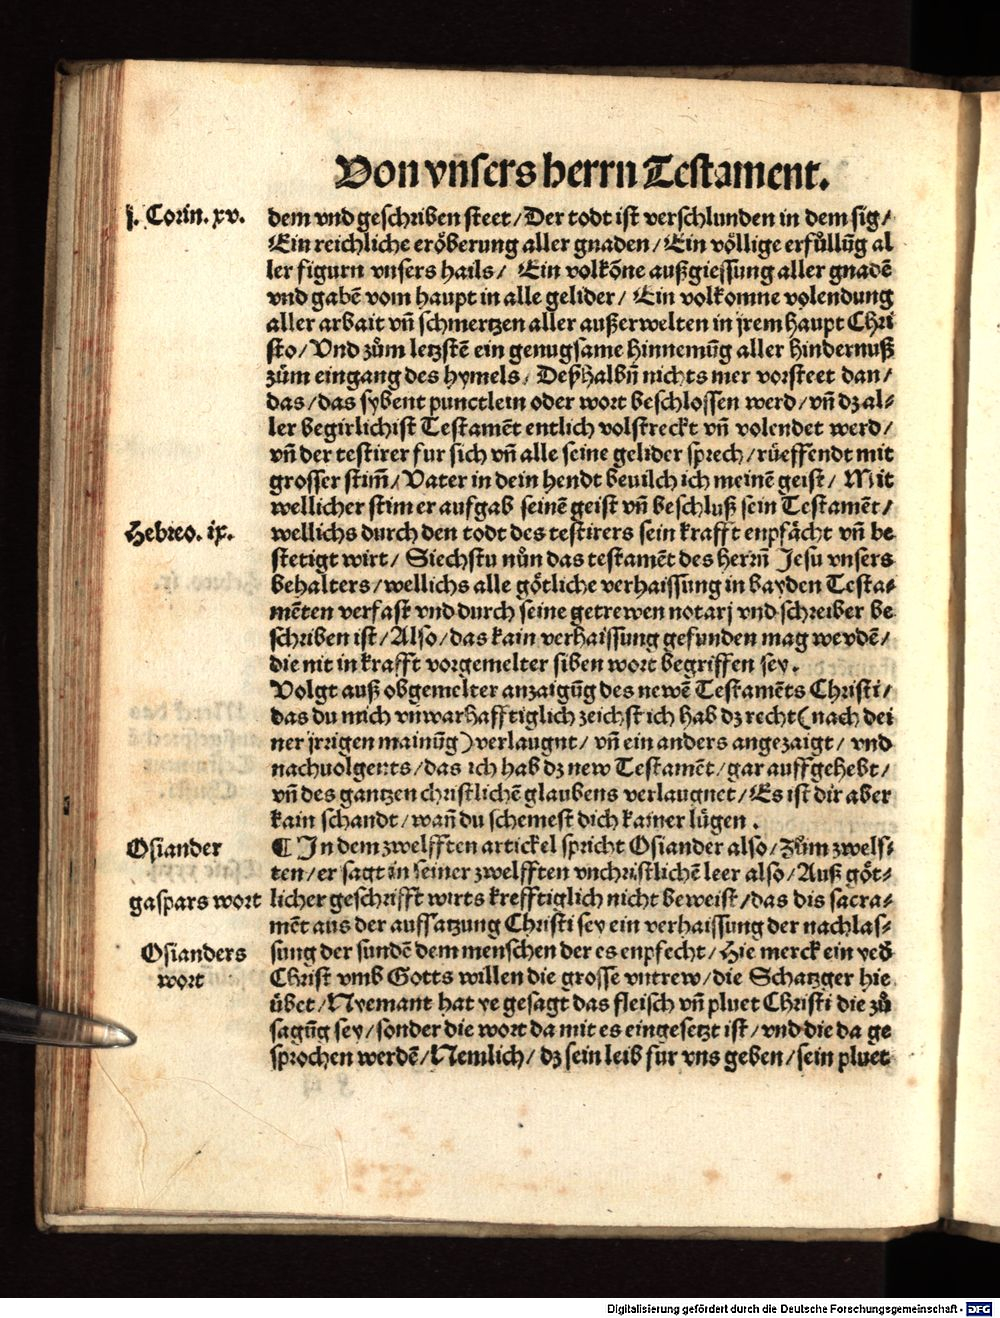 Von vnsers herrn Testament.
j. Corin. xv.
dem vnd geschriben steet/Der todt ist verschlunden in dem sig/
Ein reichliche eröberung aller gnaden/Ein völlige erfüllūg al
ler figurn vnsers hails/ Ein volkōne außgiessung aller gnadē
vnd gabē vom haupt in alle gelider/ Ein volkomne volendung
aller arbait vn̄ schmertzen aller außerwelten in jrem haupt Chri
sto/Vnd zům letzstē ein genugsame hinnemūg aller hindernuß
zům eingang des hymels/ Deßhalbn̄ nichts mer vorsteet dan/
das/das sybent punctlein oder wort beschlossen werd/vn̄ dz al⸗
ler begirlichist Testamēt entlich volstreckt vn̄ volendet werd/
vn̄ der testirer fur sich vn̄ alle seine gelider sprech/rüeffendt mit
grosser stim̄/Vater in dein hendt beuilch ich meinē geist/ Mit
wellicher stim er aufgab seinē geist vn̄ beschluß sein Testamēt/
Hebreo. ix.
wellichs durch den todt des testirers sein krafft enpfächt vn̄ be
stetigt wirt/ Siechstu nůn das testamēt des herrn̄ Jesu vnsers
behalters/wellichs alle götliche verhaissung in bayden Testa⸗
mēten verfast vnd durch seine getrewen notarj vnd schreiber be
schriben ist/Also/das kain verhaissung gefunden mag werdē/
die nit in krafft vorgemelter siben wort begriffen sey.
Volgt auß obgemelter anzaigūg des newē Testamēts Christi/
das du mich vnwarhafftiglich zeichst ich hab dz recht(nach dei
ner jrrigen mainūg)verlaugnt/vn̄ ein anders angezaigt/ vnd
nachuolgents/das ich hab dz new Testamēt/gar auffgehebt/
vn̄ des gantzen christlichē glaubens verlaugnet/Es ist dir aber
kain schandt/wan̄ du schemest dich kainer lügen.
Osiander
¶ In dem zwelfften artickel spricht Osiander also/Zům zwelf⸗
ten/er sagt in seiner zwelfften vnchristlichē leer also/Auß göt⸗
gaspars wort
licher geschrifft wirts krefftiglich nicht beweist/das dis sacra⸗
mēt aus der auffsatzung Christi sey ein verhaissung der nachlas⸗
Osianders
wort
sung der sundē dem menschen der es enpfecht/Hie merck ein yed̄
Christ vmb Gotts willen die grosse vntrew/die Schatzger hie
übet/Nyemant hat ye gesagt das fleisch vn̄ pluet Christi die zů
sagūg sey/sonder die wort da mit es eingesetzt ist/vnd die da ge
sprochen werdē/Nemlich/dz sein leib fur vns geben/sein pluet
Digitalisierung gefördert durch die Deutsche Forschungsgemeinschaft - DFG